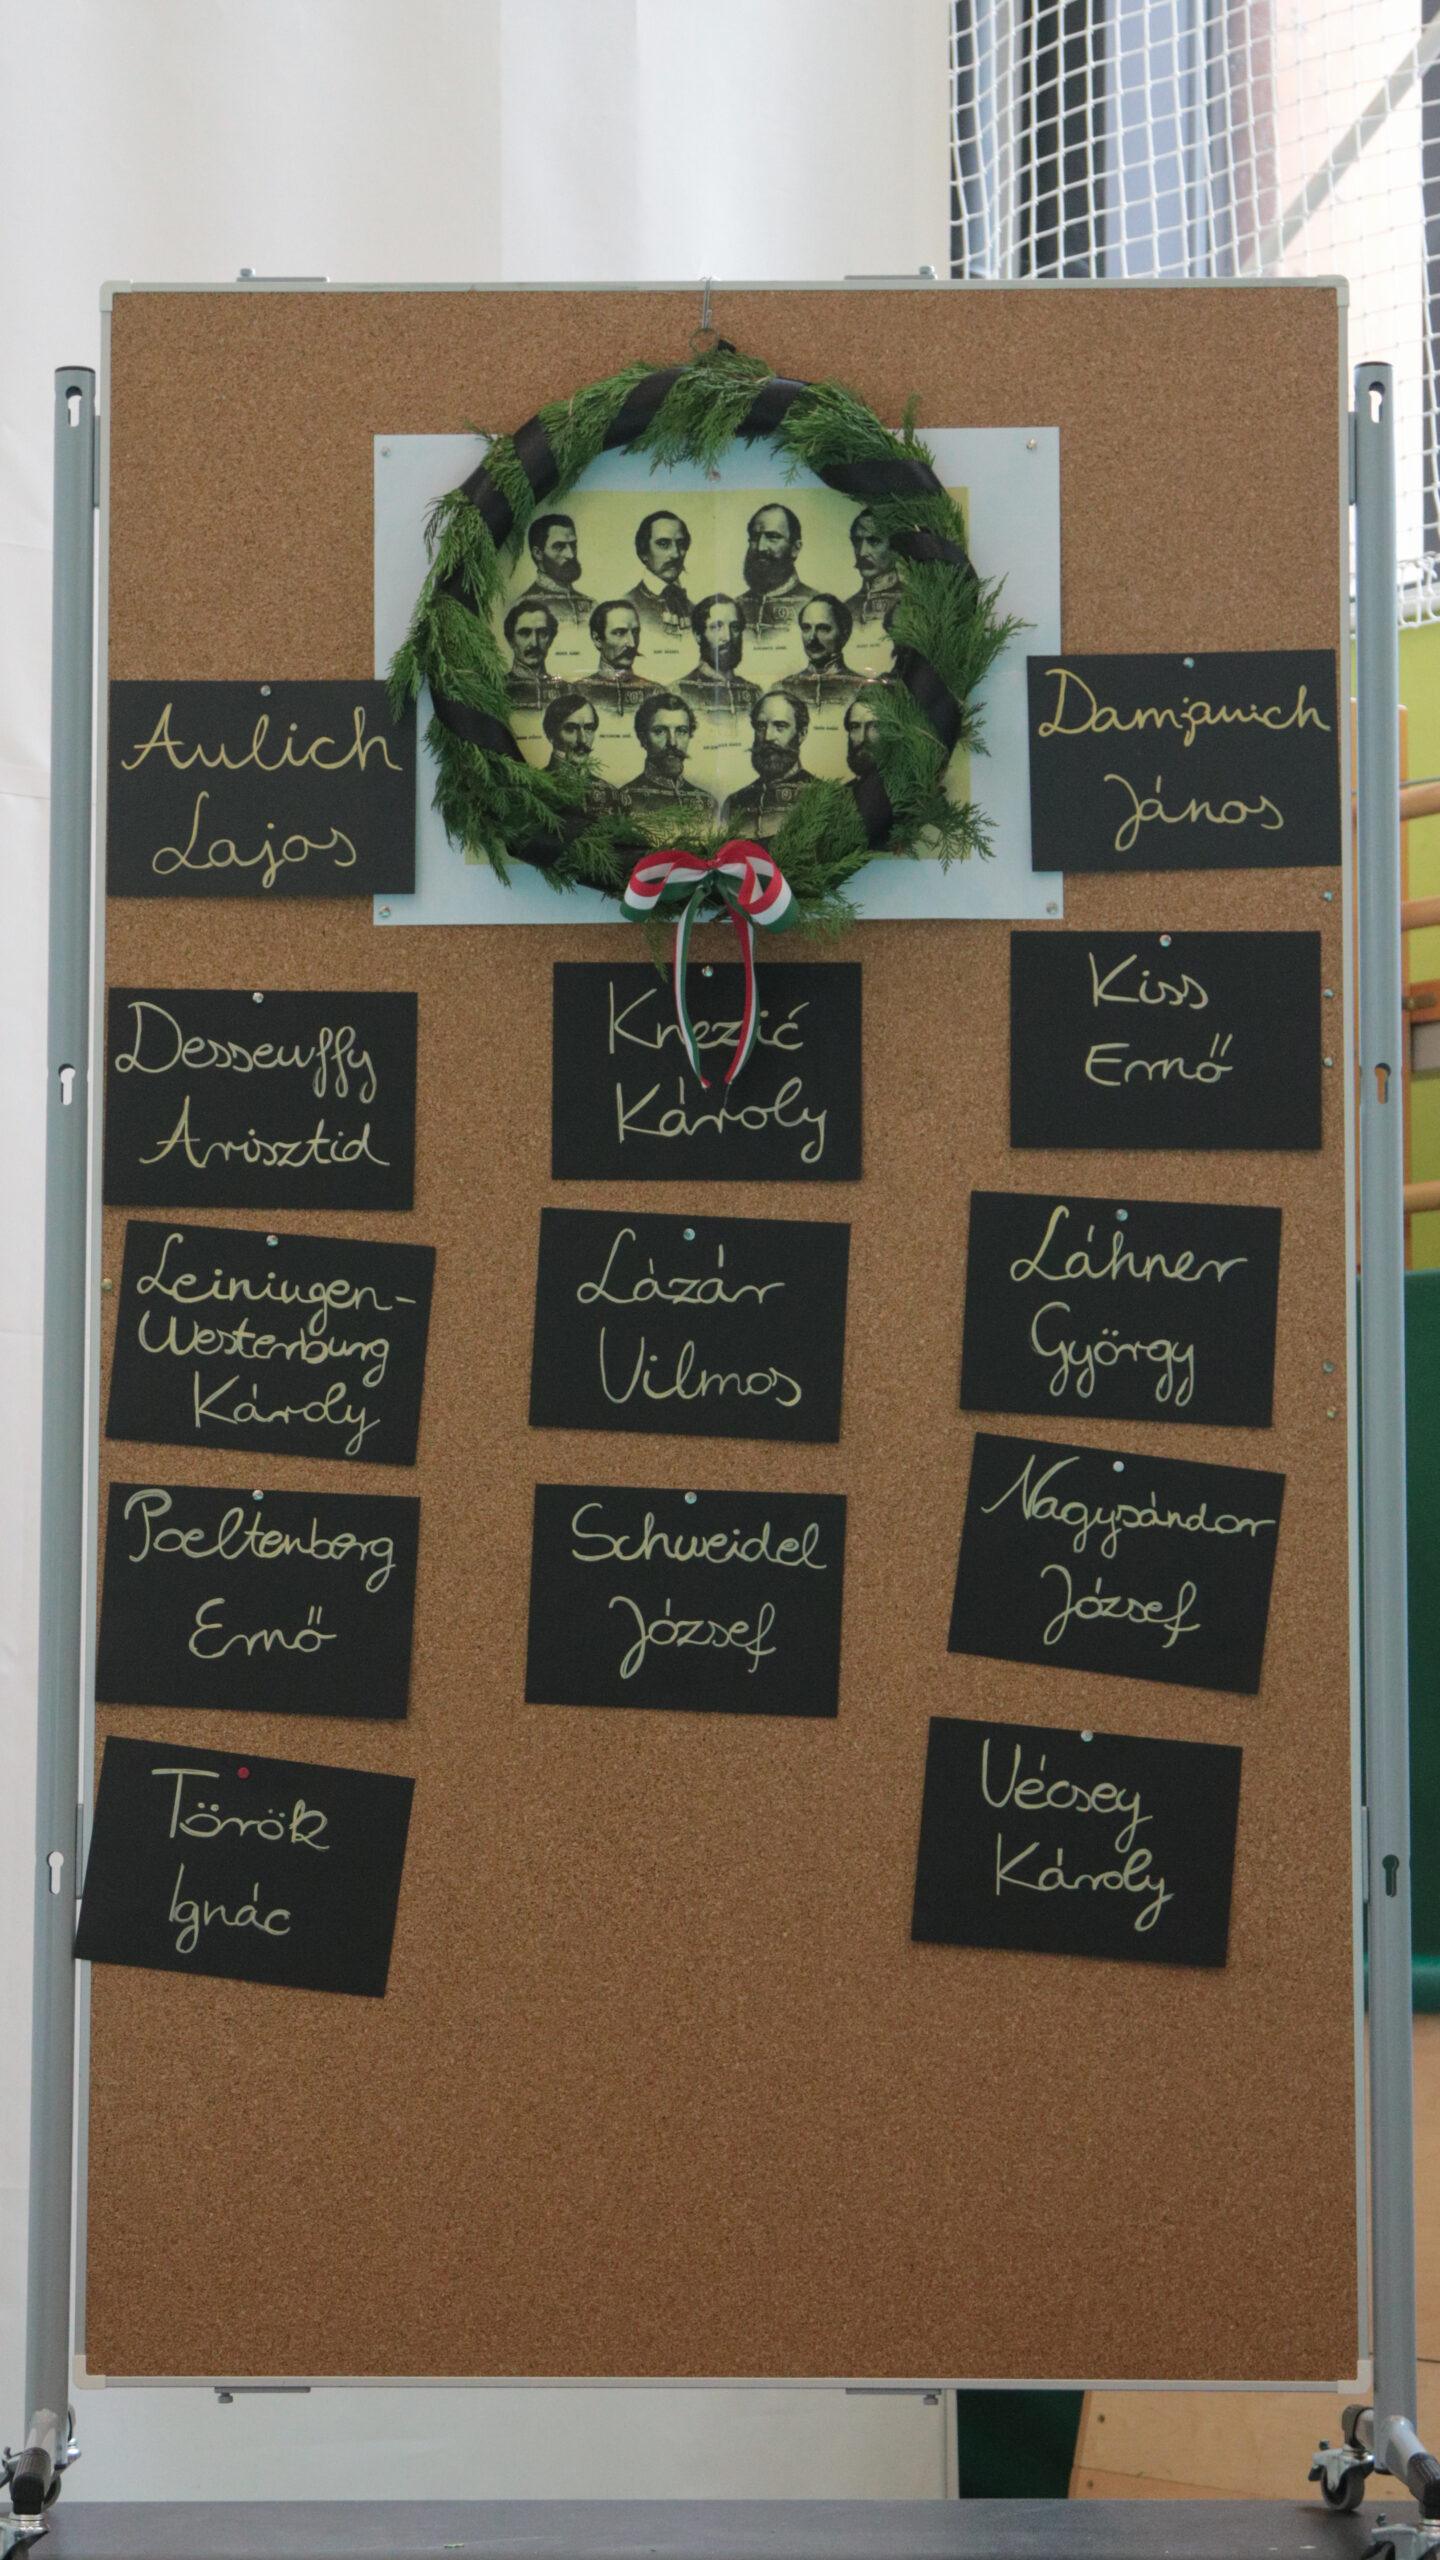 Aulich
Lajos
Damjanich
János
Dessewffy
Arisztid
Knezić
Károly
Kiss
Ernő
Leiningen-
Westerburg
Károly
Lázár
Vilmos
Láhner
György
Poeltenberg
Ernő
Schweidel
József
Nagysándor
József
Török
Ignác
Vécsey
Károly